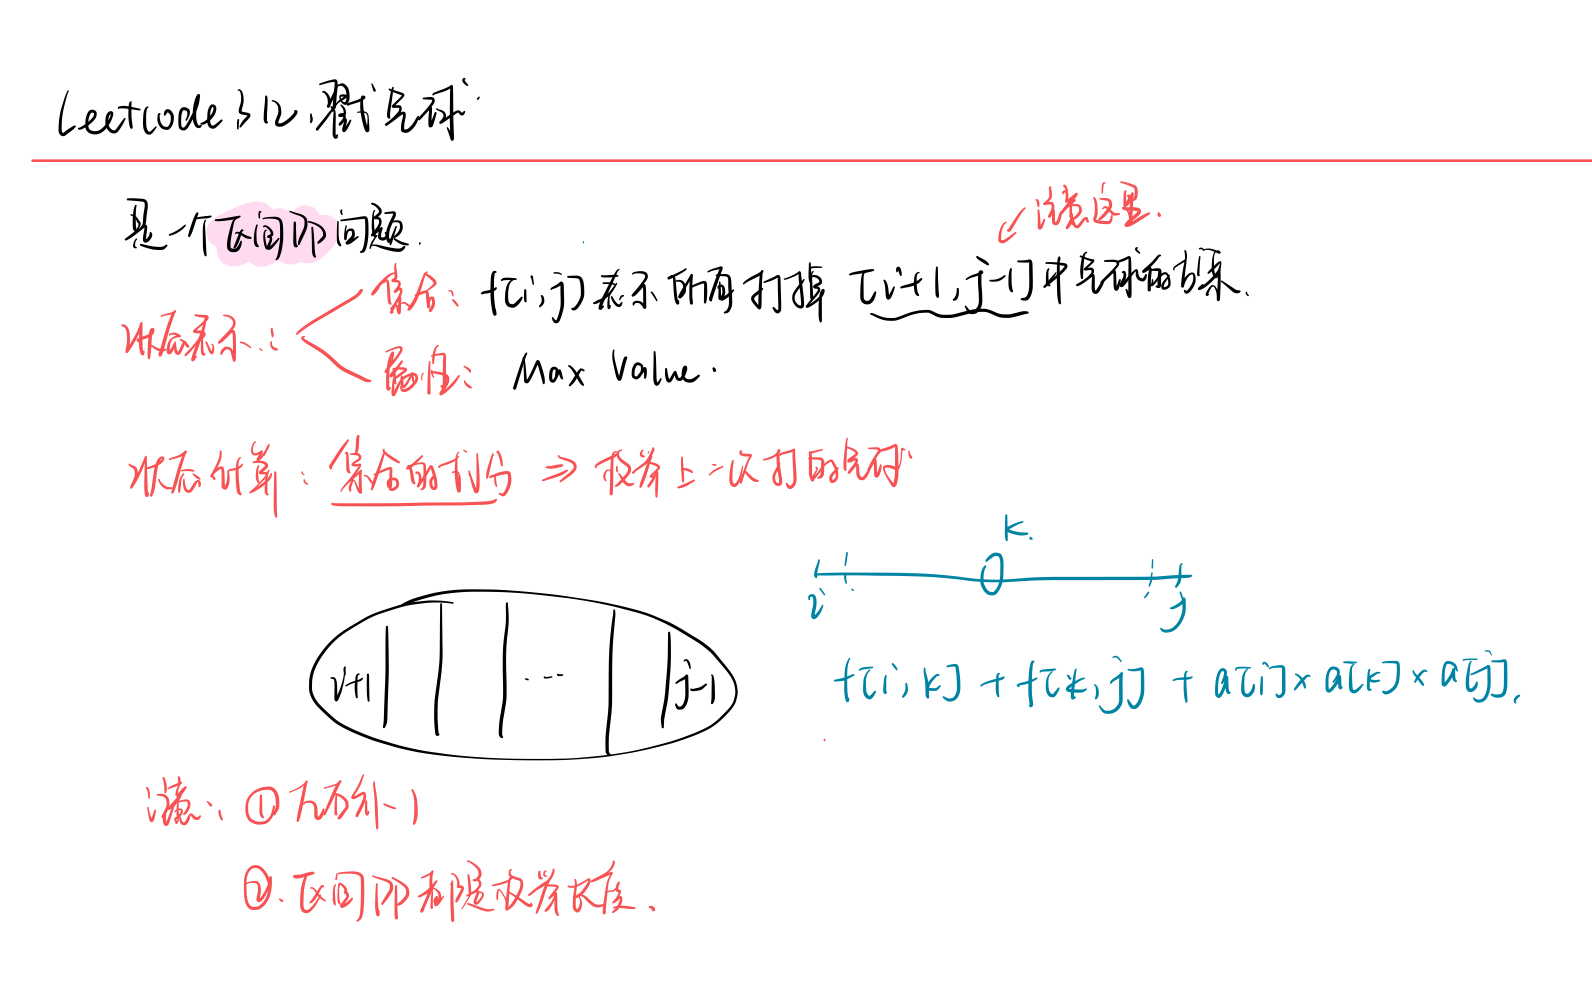 Leetcode 312, 戳气球
是一个区间DP问题.
注意这里.
状态表示:
集合: f[i, j] 表示所有打掉 [i+1, j-1] 中气球的方案.
属性: Max Value.
状态计算: 集合的划分 ⇒ 枚举上一次打的气球
k.
i j
i+1 ... j-1
f[i, k] + f[k, j] + a[i] × a[k] × a[j].
注意: ① 左右补1
②. 区间DP都是枚举长度.